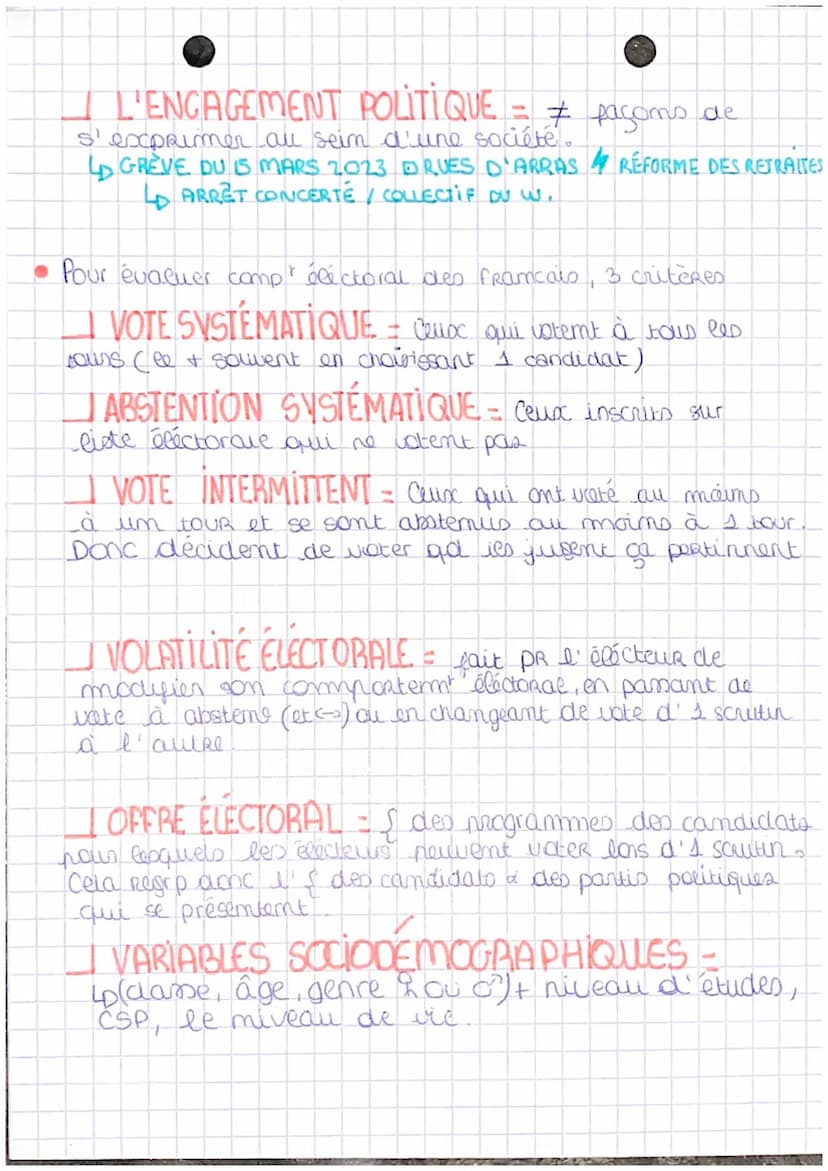 L'ENGAGEMENT POLITIQUE = ≠ façons de
s'exprimer au sein d'une société.
↳ GRÈVE DU 15 MARS 2023 RUES D'ARRAS RÉFORME DES RETRAITES
↳ ARRÊT CONCERTÉ / COLLECTIF DU W.
• Pour évaluer compr éléctoral des français, 3 critères
VOTE SYSTÉMATIQUE = Ceux qui votent à tous les
tours (le + souvent en choisissant 1 candidat)
ABSTENTION SYSTÉMATIQUE = Ceux inscrits sur
liste éléctorale qui ne votent pas
VOTE INTERMITTENT = Ceux qui ont voté au moins
à un tour et se sont abstenus au moins à 1 tour.
Donc décident de voter qd ils jugent ça pertinnent
VOLATILITÉ ÉLÉCTORALE = fait pr l'élécteur de
modifier son comportemt éléctoral, en passant de
vote à abstent° (et ↔) ou en changeant de vote d'1 scrutin
à l'autre.
OFFRE ÉLÉCTORAL = { des programmes des candidats
pour lesquels les élécteurs peuvent voter lors d'1 scrutin.
Cela regrp donc l'{ des candidats & des partis politiques
qui se présentent.
VARIABLES SOCIODÉMOGRAPHIQUES =
↳ (classe, âge, genre ♀ ou ♂) + niveau d'études,
CSP, le niveau de vie.